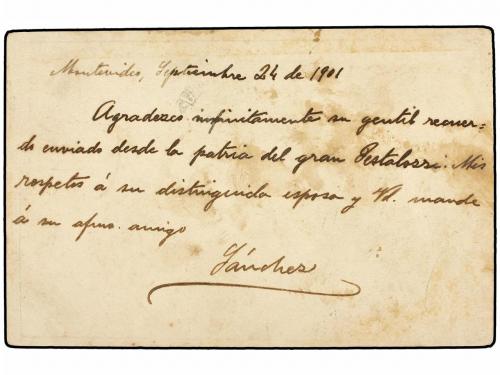 Montevideo, Septiembre 24 de 1901
Agradezco infinitamente su gentil recuer-
do enviado desde la patria del gran Pestalozzi. Mis
respetos á su distinguida esposa y Vd. mande
á su afmo. amigo
Sánchez